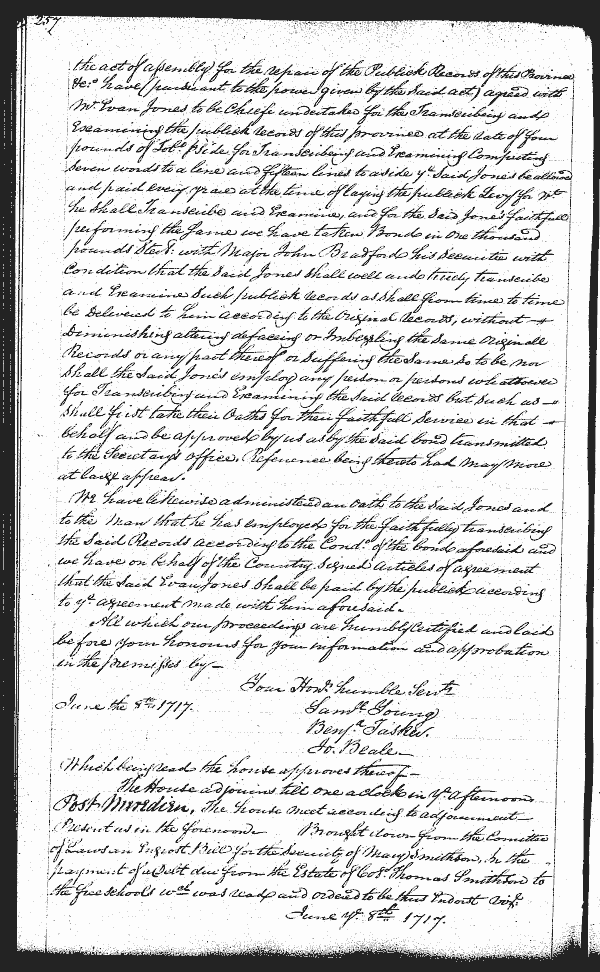 257
the act of assembly for the repair of the Publick Records of this Province
&c.a have (pursuant to the power given by the Said act) agreed with
Mr. Evan Jones to be Chiefe undertaker for the Transcribing and
Examining the publick records of this province at the rate of four
pounds of Tob.o p side for Transcribing and Examining Competing
Seven words to a line and fifteen lines to a side ye. Said Jones be allowed
and paid every year at the time of laying the publick Levy for wt.
he shall Transcribe and Examine, and for the Said Jones's faithfull
performing the Same we have taken Bond in One thousand
pounds Sterl: with Major John Bradford his Securitie with
Condition that the Said Jones Shall well and truely transcribe
and Examine Such publick records as Shall from time to time
be Delivered to him according to the Original records, without
Diminishing altering defaceing or Imbezling the Same Originall
Records or any part thereof or Suffering the Same So to be nor
Shall the Said Jones employ any person or persons whatsoever
for Transcribing and Examining the Said Records but Such as
Shall first take their Oaths for their faithfull Service in that
behalf and be approved by us as by the Said bond transmitted
to the Secretarys office, Reference being thereto had may more
at large appear.
We have likewise administered an oath to the Said Jones and
to the man that he has employed for the faithfully transcribing
the Said Records according to the Cond.n of the bond afores.aid and
we have on behalf of the Country Signed articles of agreement
that the Said Evan Jones Shall be paid by the publick according
to ye. agreement made with him aforesaid.
All which our proceedings are humbly Certified and laid
before your honours for your information and approbation
in the premisses by
Your Honrs. humble Servts.
June the 8th 1717.
Saml. Young
Benja. Tasker.
Jo. Beale
Which being read the house approves thereof
The House adjourns till one a clock in ye. afternoon
Post Meridien, The house meet according to adjournment
Present as in the forenoon Brought down from the Comittee
of Laws an Engrost Bill for the Security of Mary Smithson, in the
payment of a Debt due from the Estate of Col. Thomas Smithson to
the free schools wch. was read and ordered to be thus Endorst Vizt.
June ye. 8th 1717.